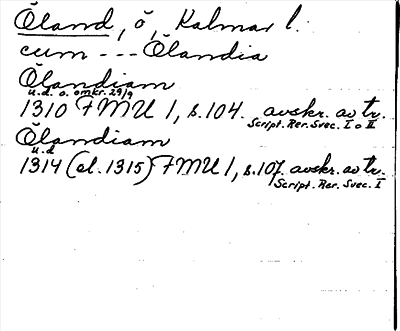 Öland, ö, Kalmar l.
cum --- Ölandia
Ölandiam
u.d. o. omkr. 29/9
1310 FMU 1, s. 104. avskr. av tr.
Script. Rer. Svec. I o II
Ölandiam
u.d
1314 (el. 1315) FMU 1, s. 107. avskr. av tr.
Script. Rer. Svec. I